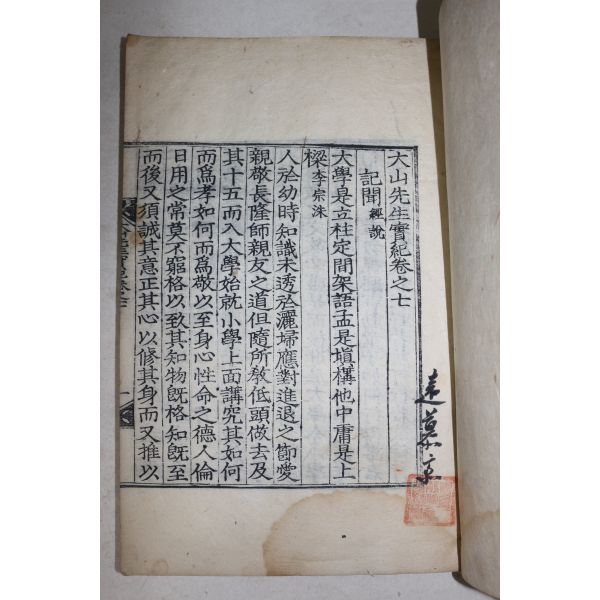 大山先生實紀卷之七
記聞 經說
大學是立柱定間架語孟是塡橫他中庸是上
樑 李宗洙
人於幼時知識未透於灑掃應對進退之節愛
親敬長隆師親友之道但隨所敎低頭做去及
其十五而入大學始就小學上面講究其如何
而爲孝如何而爲敬以至身心性命之德人倫
日用之常莫不窮格以致其知物旣格知旣至
而後又須誠其意正其心以修其身而又推以
遠慕亭